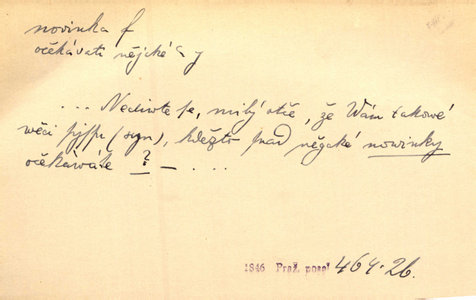 novinka f
očekávati nějaké a y
... Nedivte se, milý otče, že Wám takové
wěci píšu (syn), kdežto snad nějaké nowinky
očekáwáte ? – ...
1846 Praž. posel 464.26.